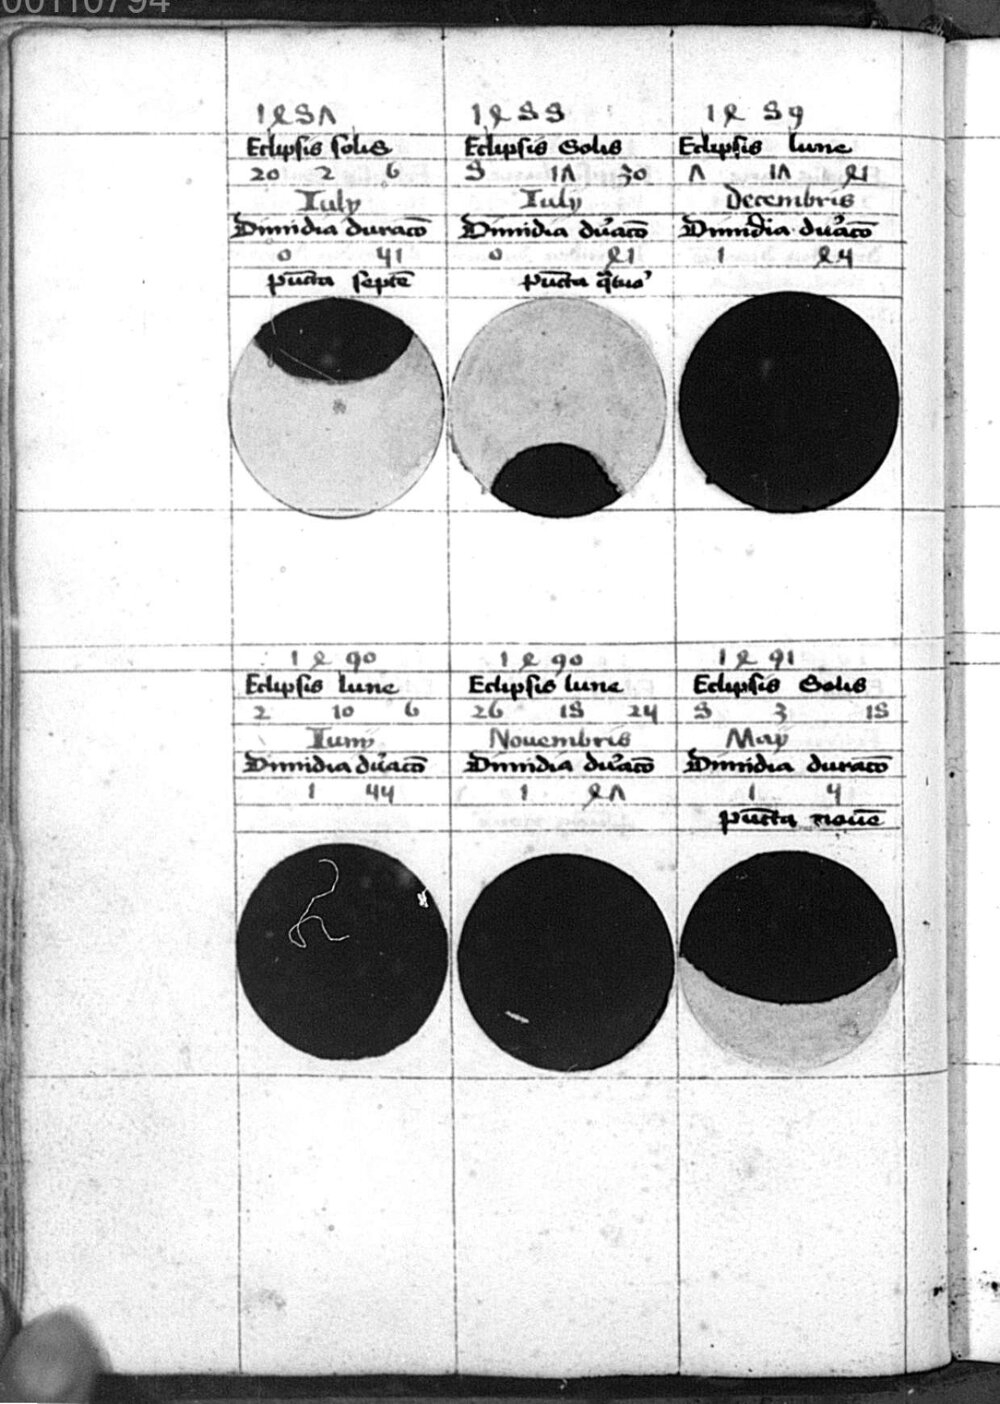 00110794
1487
Eclipsis solis
20 2 6
July
Dimidia duracō
0 51
puncta septē
1488
Eclipsis Solis
8 17 30
July
Dimidia duracō
0 41
puncta qtuor
1489
Eclipsis lune
7 17 41
Decembris
Dimidia duracō
1 45
1490
Eclipsis lune
2 10 6
Iunij
Dimidia duracō
1 55
1490
Eclipsis lune
26 18 25
Nouembris
Dimidia duracō
1 47
1491
Eclipsis Solis
8 3 18
May
Dimidia duracō
1 5
puncta nouē